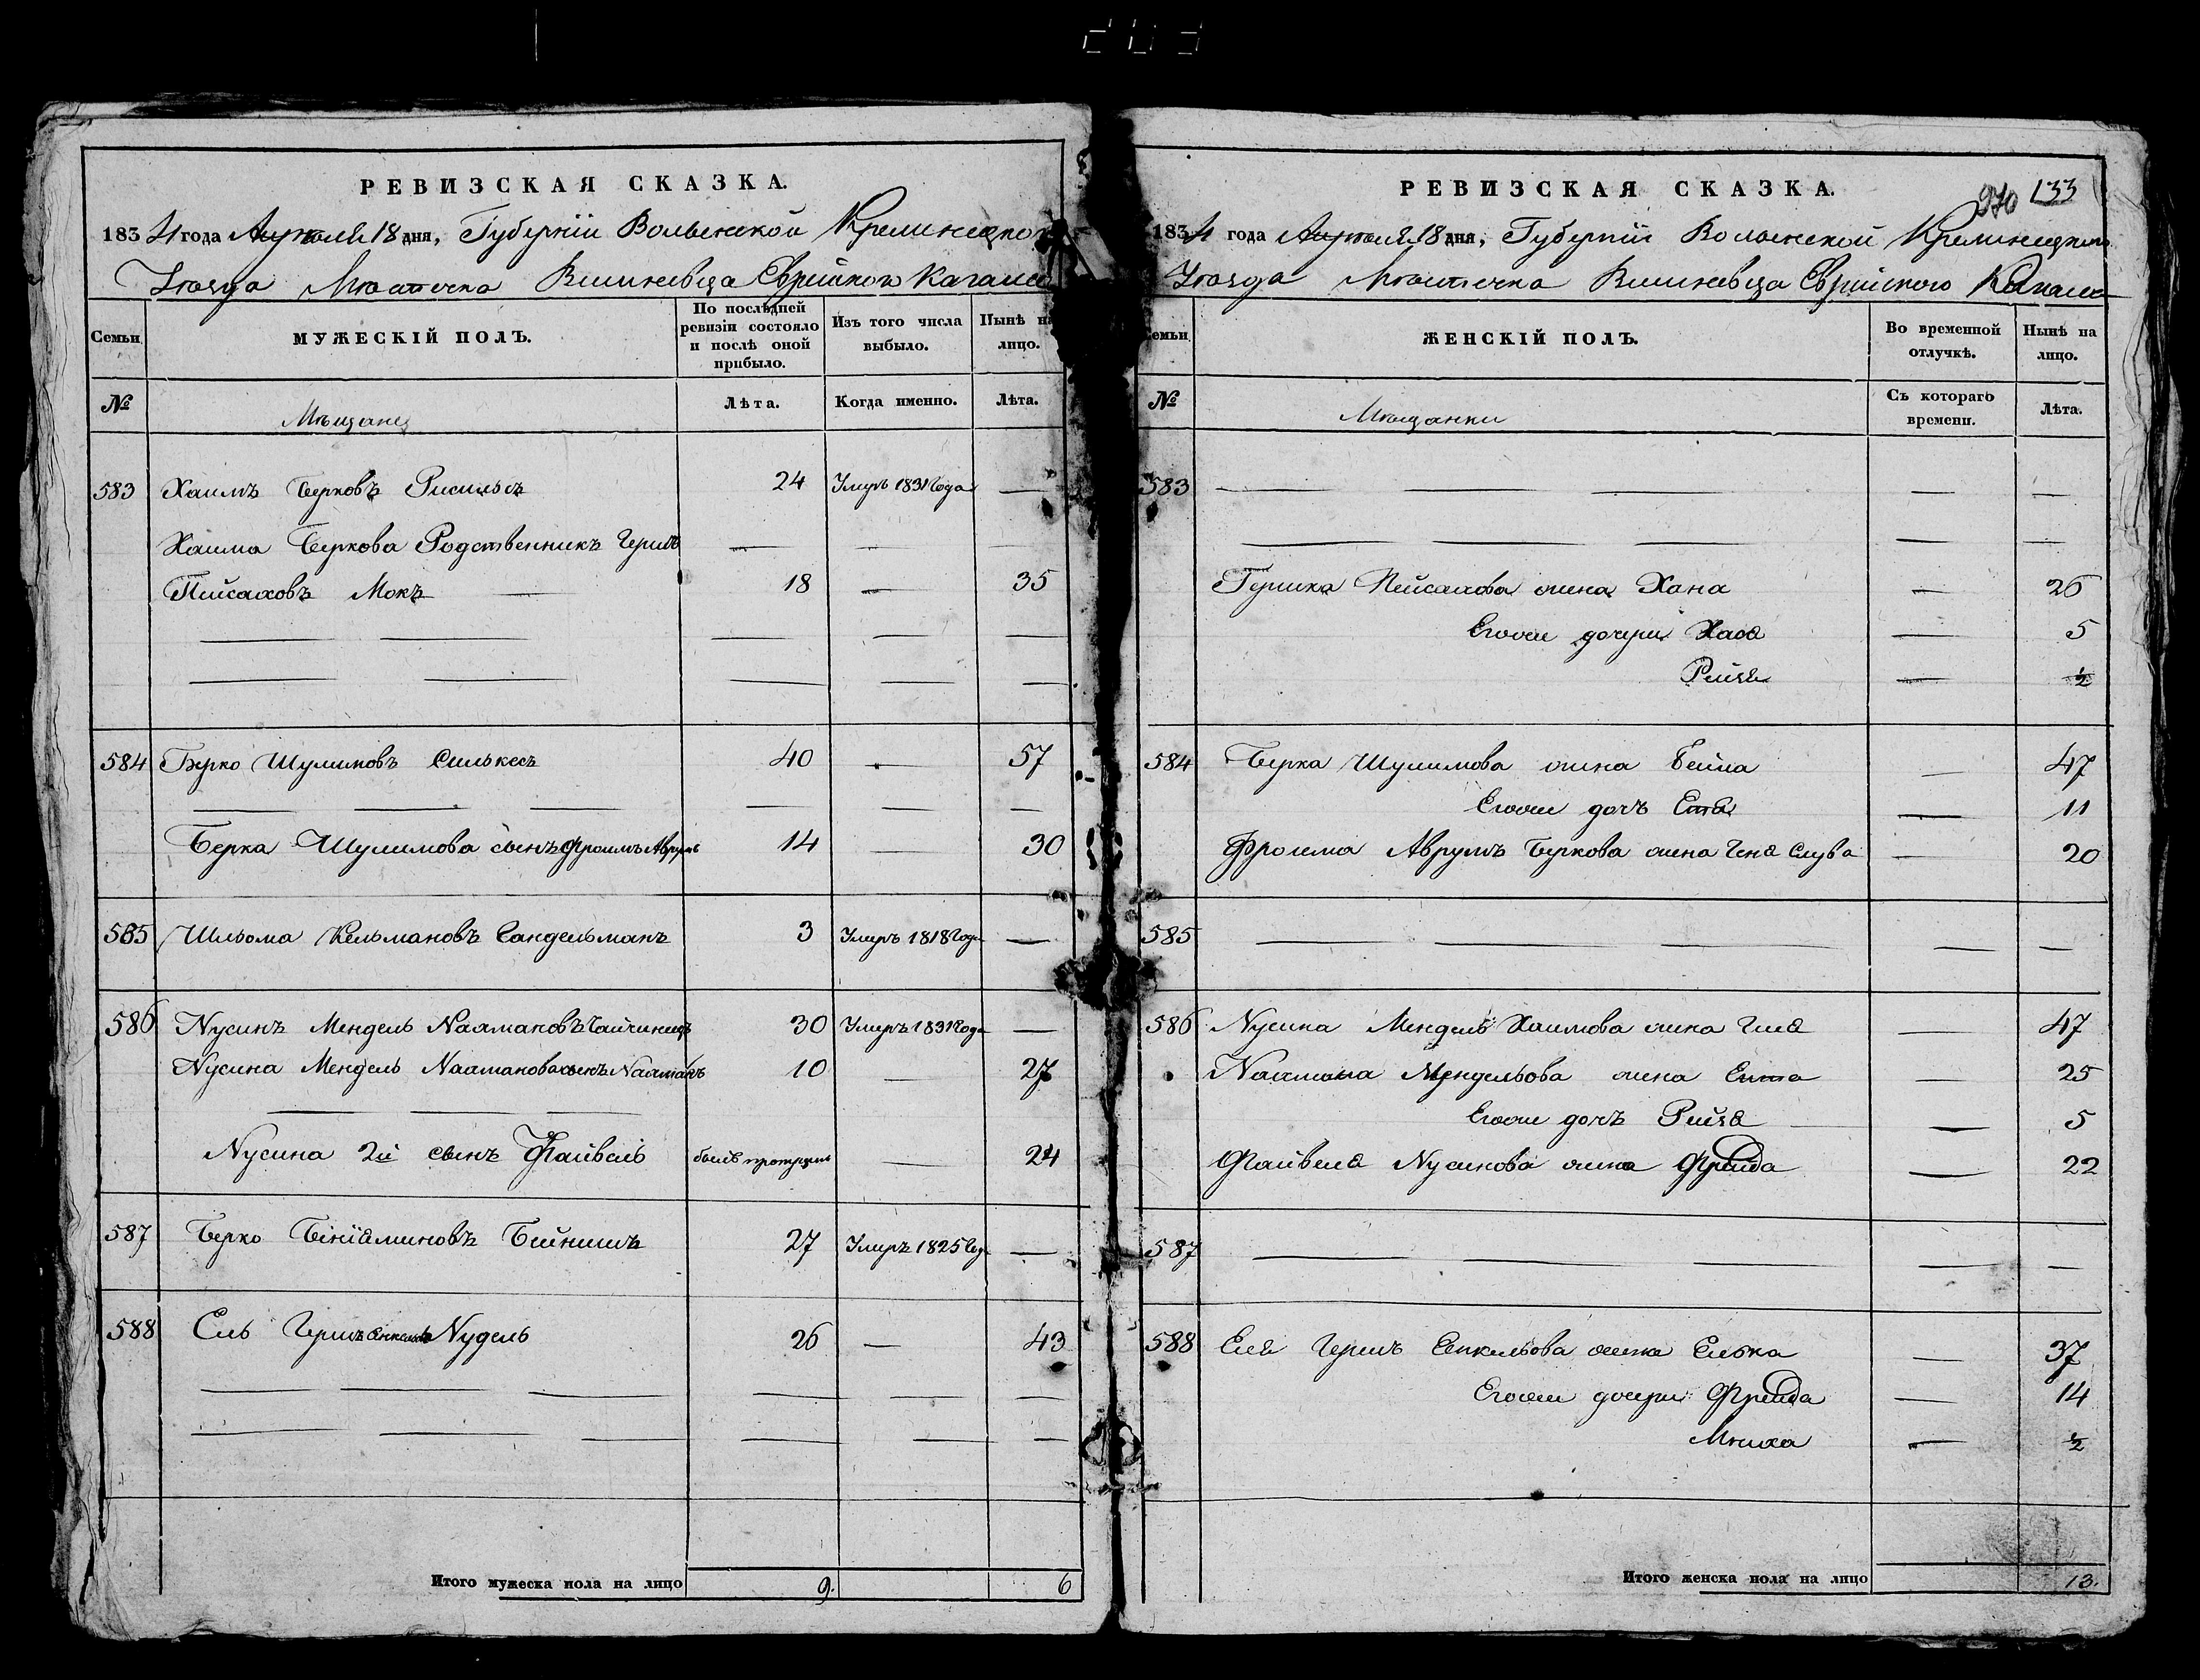 РЕВИЗСКАЯ СКАЗКА.
1834 года Апреля 18 дня, Губерніи Волынской Кременецкого
Уѣзда Мѣстечка Вишневца Еврейского Кагала
Семьи
МУЖЕСКІЙ ПОЛЪ.
По послѣдней ревизіи состояло и послѣ оной прибыло.
Изъ того числа выбыло.
Нынѣ на лицо.
№
Мѣщане
Лѣта.
Когда именно.
Лѣта.
583 Хаимъ Берковъ 24 Умеръ 1831 Года —
Хаима Беркова Родственникъ Гершъ — — —
Пейсаховъ Мокъ — 18 — 35
584 Берко Шулимовъ Силькесъ 40 — 57
Берка Шулимова сынъ Фроимъ Аврумъ 14 — 30
585 Шльома Кельмановъ Сандельманъ 3 Умеръ 1818 Года —
586 Нусинъ Мендель Нахмановъ 30 Умеръ 1831 Года —
Нусина Мендель Нахманова сынъ Нахманъ 10 — 27
Нусина 2й сынъ Файвель былъ пропущенъ — 24
587 Берко Бініаминовъ 27 Умеръ 1825 Год —
588 Ель Гершъ Нудель 26 — 43
Итого мужеска пола на лицо 9. 6
270 133
РЕВИЗСКАЯ СКАЗКА.
1834 года Апреля 18 дня, Губерніи Волынской Кременецкого
Уѣзда Мѣстечка Вишневца Еврейского Кагала
Семьи
ЖЕНСКІЙ ПОЛЪ.
Во временной отлучкѣ.
Нынѣ на лицо.
№
Мѣщанки
Съ котораго времени.
Лѣта.
583 — — — — —
Гершка Пейсахова жена Хана — 26
Егоже дочери Хая — 5
Рейзя — ½
584 Берка Шулимова жена Бейла — 47
Егоже дочь Етя — 11
Фроима Аврумъ Беркова жена Гена Слува — 20
585 — — — — —
586 Нусина Мендель Хаимова жена — 47
Нахмана Мендельова жена Ента — 25
Егоже дочь Рейзя — 5
Файвеля Нусинова жена Фрейда — 22
587 — — — — —
588 Еля Гершъ Енкельова жена Елька — 37
Егоже дочери Фрейда — 14
— ½
Итого женска пола на лицо 13.